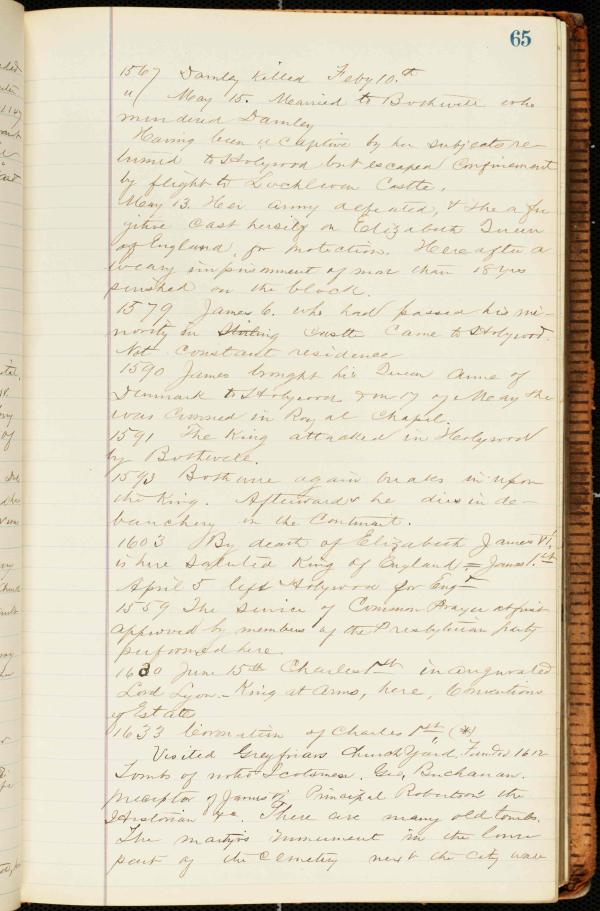 65
1567 Darnley killed Feby 10.th
" May 15. Married to Bothwell who
murdered Darnley
Having been a captive by her subjects re-
turned to Holyrood but escaped Confinement
by flight to Lochleven Castle.
May 13. Her army defeated, & she a fu-
gitive cast herself on Elizabeth Queen
of England, for protection. Here after a
weary imprisonment of more than 18 yrs
perished on the block.
1579 James 6. who had passed his mi-
nority in Stirling Castle Came to Holyrood.
Not constant residence
1590 James brought his Queen Anne of
Denmark to Holyrood & on 17 of May she
was Crowned in Royal Chapel.
1591 The King attacked in Holyrood
by Bothwell.
1593 Bothwell again breaks in upon
the King. Afterwards he dies in de-
bauchery on the Continent.
1603 By death of Elizabeth James VI,
is here saluted King of England = James 1st
April 5 left Holyrood for Engd
1559 The service of Common Prayer at first
approved by members of the Presbyterian party
performed here.
1630 June 15th Charles 1st inaugurated
Lord Lyon - King at Arms, here, Conventions
of Estates
1633 Coronation of Charles 1st (*)
Visited Greyfriars Church Yard. Founded 1612
Tombs of noted Scotsmen. Geo. Buchanan.
preceptor of James 6. Principal Robertson the
Historian &c. There are many old tombs.
The martyrs monument in the lower
part of the Cemetery next the City wall